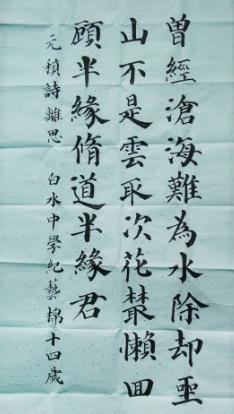 曾經滄海難為水除却巫
山不是雲取次花叢懶回
顧半緣脩道半緣君
元稹詩離思 白水中學紀藝棉十四歲